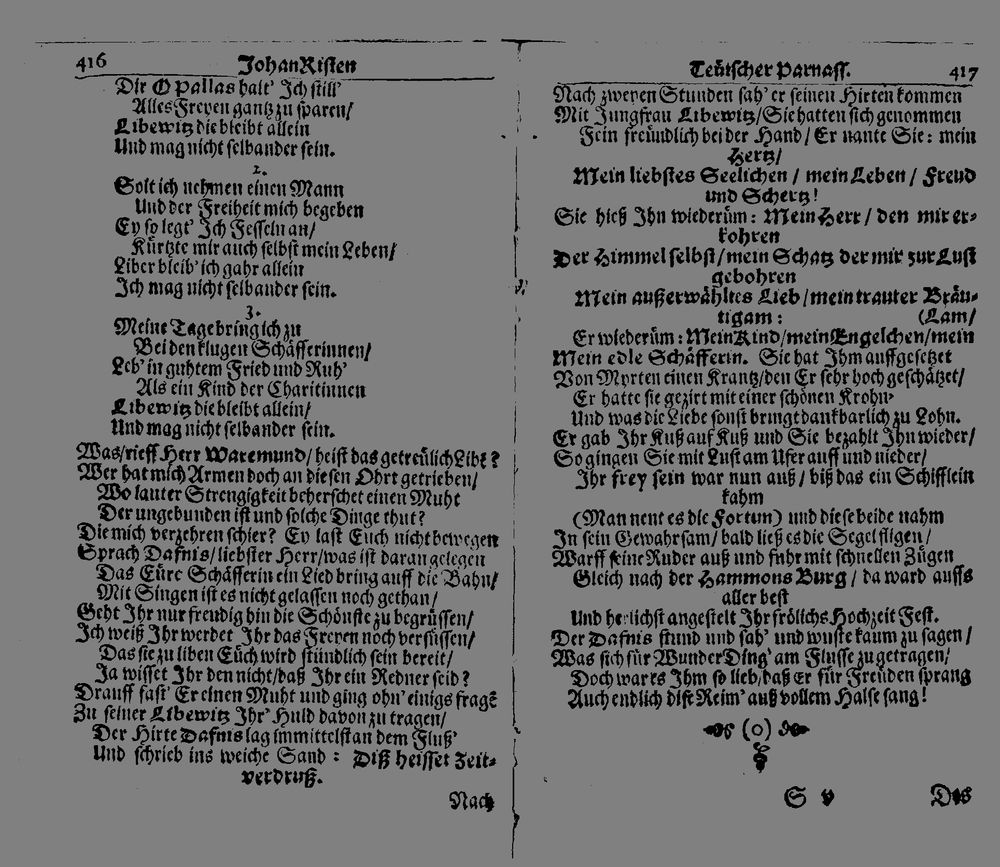 416 Johan Risten
Dir O Pallas halt' Ich still'
Alles Freyen gantz zu sparen/
Libewitz die bleibt allein
Und mag nicht selbander sein.
2.
Solt ich nehmen einen Mann
Und der Freiheit mich begeben
Ey so legt' Ich Fesseln an/
Kürtzte mir auch selbst mein Leben/
Liber bleib' ich gahr allein
Ich mag nicht selbander sein.
3.
Meine Tage bring ich zu
Bei den klugen Schäfferinnen/
Leb' in guhtem Fried und Ruh'
Als ein Kind der Charitinnen
Libewitz die bleibt allein/
Und mag nicht selbander sein.
Was/rieff Herr Waremund/ heist das getreülich Libt?
Wer hat mich Armen doch an diesen Ohrt getrieben/
Wo lauter Strengigkeit beherschet einen Muht
Der ungebunden ist und solche Dinge thut?
Die mich verzehren schier? Ey last Euch nicht bewegen
Sprach Dafnis/ liebster Herr/was ist daran gelegen
Das Eüre Schäfferin ein Lied bring auff die Bahn/
Mit Singen ist es nicht gelassen noch gethan/
Geht Ihr nur freudig hin die Schönste zu begrüssen/
Ich weiß Ihr werdet Ihr das Freyen noch versüssen/
Das sie zu liben Eüch wird stündlich sein bereit/
Ja wisset Ihr den nicht/daß Ihr ein Redner seid?
Drauff fast' Er einen Muht und ging ohn' einigs fragē
Zu seiner Libewitz Ihr' Huld davon zu tragen/
Der Hirte Dafnis lag immittelst an dem Fluß'
Und schrieb ins weiche Sand: Diß heisset Zeit-
verdruß.
Nach
Teütscher Parnass. 417
Nach zweyen Stunden sah' er seinen Hirten kommen
Mit Jungfrau Libewitz/Sie hatten sich genommen
Fein freündlich bei der Hand/ Er nante Sie: mein
Hertz/
Mein liebstes Seelichen/ mein Leben/ Freud
und Schertz!
Sie hieß Ihn wiederüm: Mein Herr/ den mir er-
kohren
Der Himmel selbst/mein Schatz der mir zur Lust
gebohren
Mein außerwähltes Lieb/mein trauter Bräu-
tigam: (Lam/
Er wiederüm: Mein Kind/mein Engelchen/mein
Mein edle Schäfferin. Sie hat Ihm auffgesetzet
Von Myrten einen Krantz/den Er sehr hoch geschätzet/
Er hatte sie gezirt mit einer schönen Krohn'
Und was die Liebe sonst bringt dankbarlich zu Lohn.
Er gab Ihr Kuß auf Kuß und Sie bezahlt Ihn wieder/
So gingen Sie mit Lust am Ufer auff und nieder/
Ihr frey sein war nun auß/ biß das ein Schifflein
kahm
(Man nent es die Fortun) und diese beide nahm
In sein Gewahrsam/ bald ließ es die Segel fligen/
Warff seine Ruder auß und fuhr mit schnellen Zügen
Gleich nach der Hammons Burg/ da ward auffs
aller best
Und herlichst angestelt Ihr frölichs Hochzeit Fest.
Der Dafnis stund und sah' und wuste kaum zu sagen/
Was sich für Wunder Ding' am Flusse zugetragen/
Doch war es Ihm so lieb/daß Er für Freüden sprang
Auch endlich dise Reim' auß vollem Halse sang!
(o)
S v Des